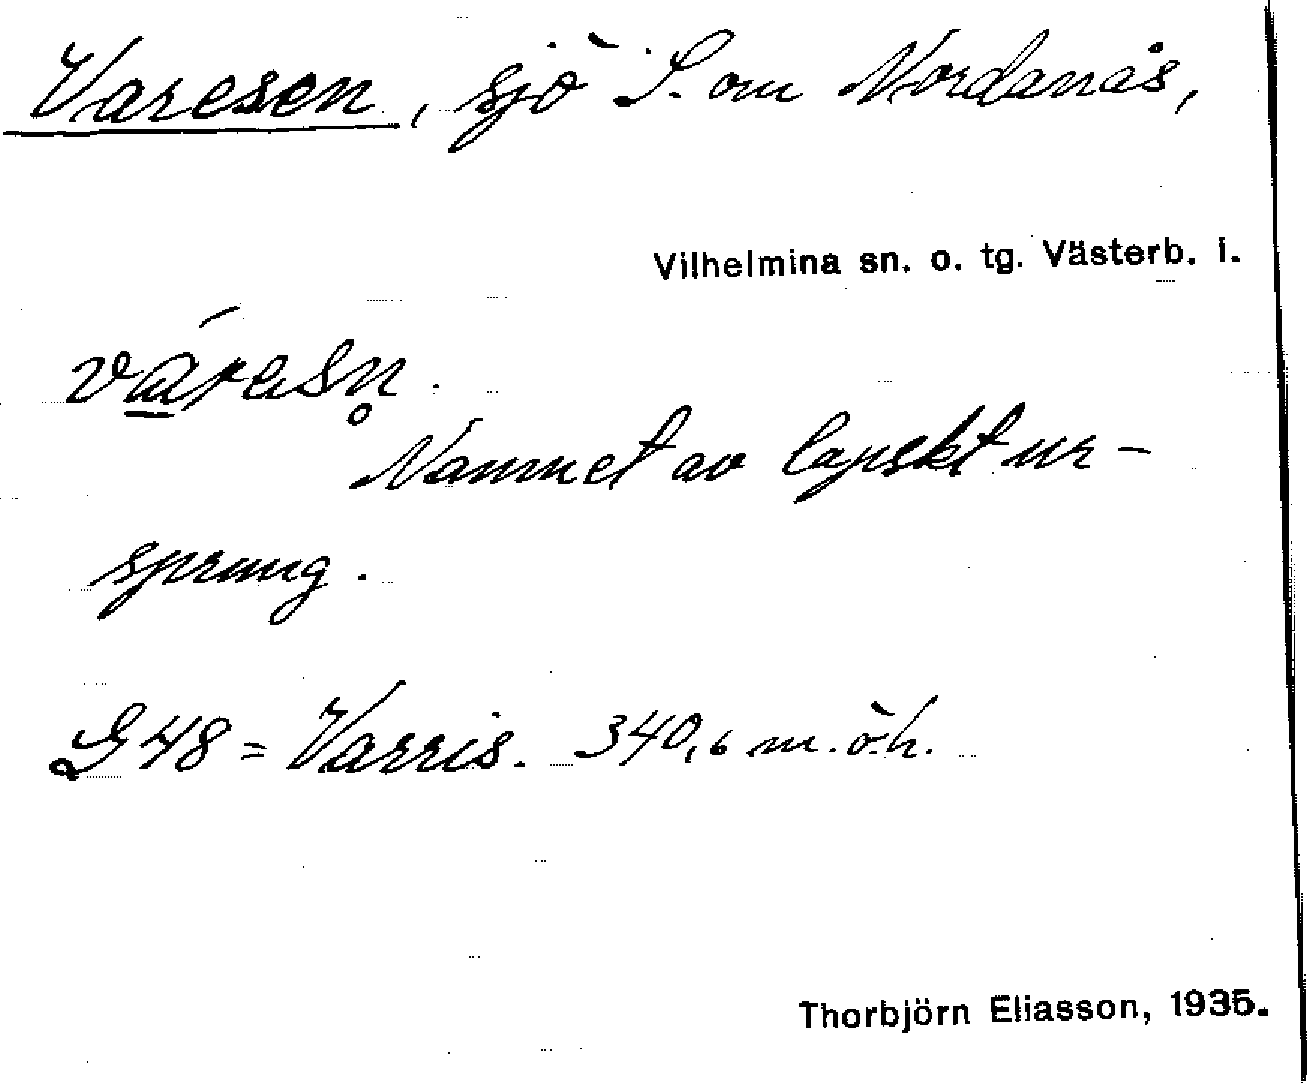 Varesen, sjö S. om Nordanås,
Vilhelmina sn. o. tg. Västerb. l.
várɑsn̥.
Namnet av lapskt ur-
sprung.
G48 = Varris. 340,6 m. ö. h.
Thorbjörn Eliasson, 1935.